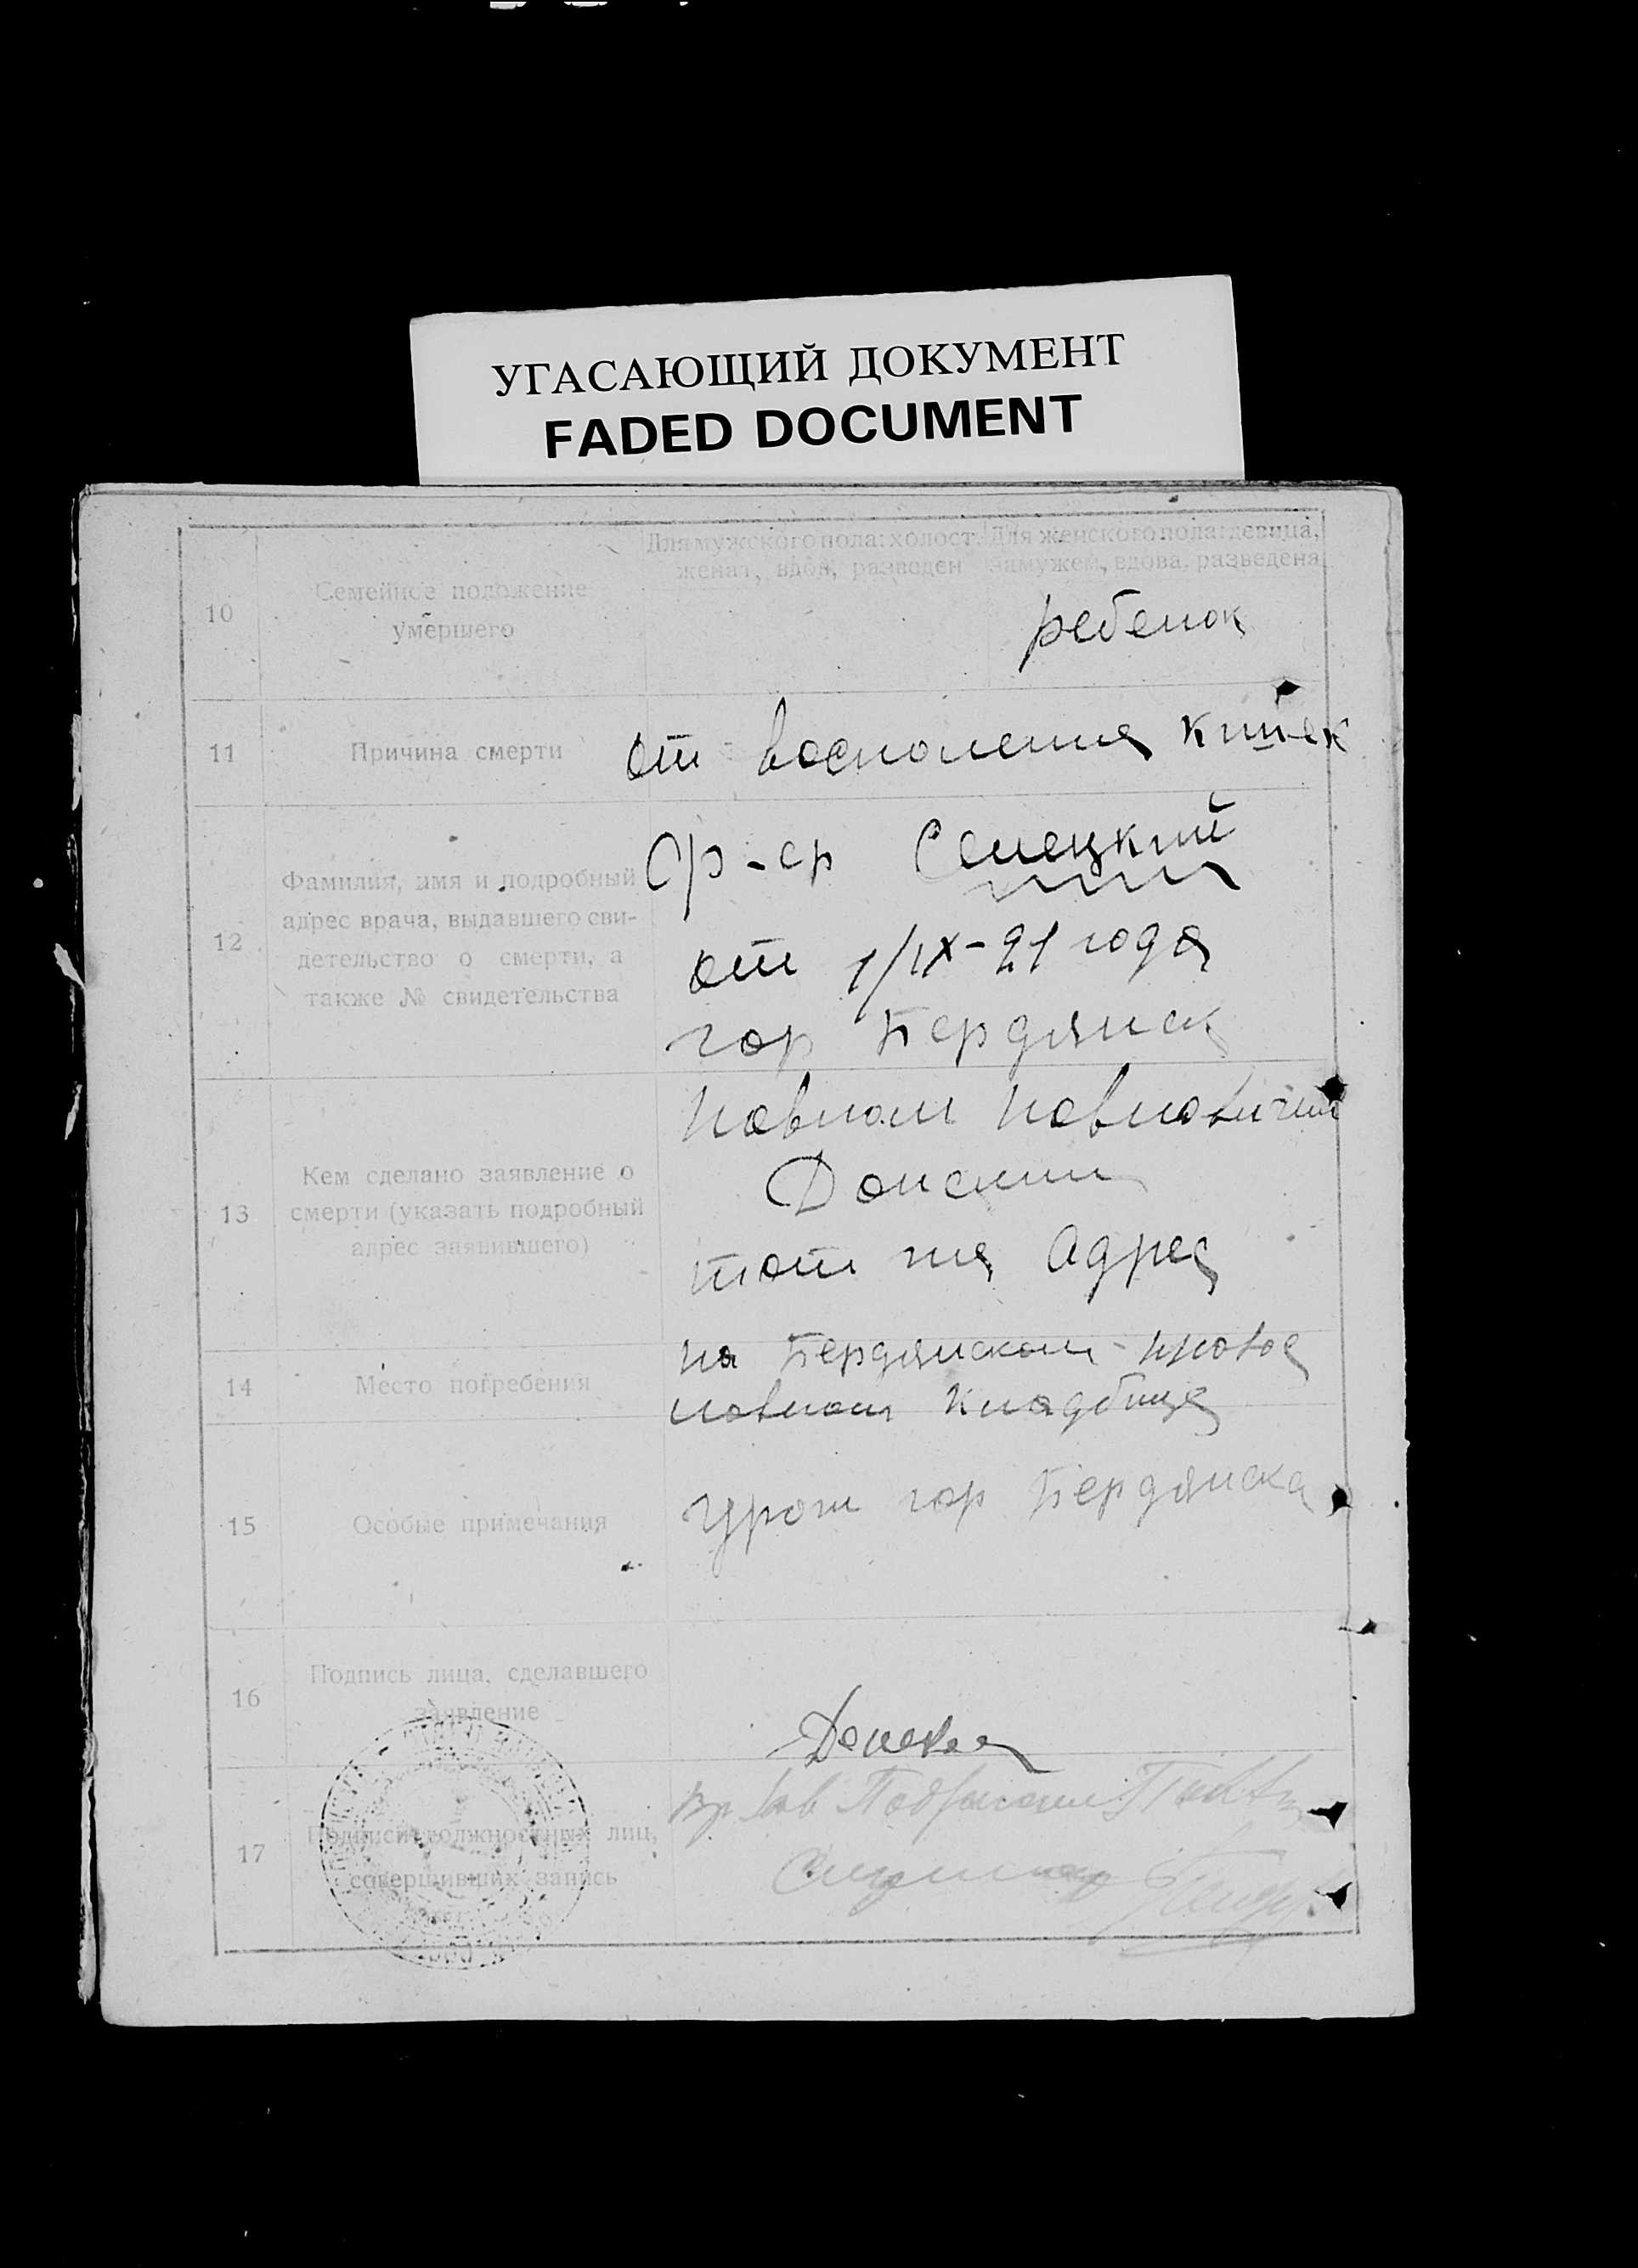 УГАСАЮЩИЙ ДОКУМЕНТ
FADED DOCUMENT
10
Семейное положение
умершего
Для мужского пола: холост,
женат, вдов, разведен
Для женского пола: девица,
замужем, вдова, разведена
ребенок
11
Причина смерти
от восполения кишек
12
Фамилия, имя и подробный
адрес врача, выдавшего сви-
детельство о смерти, а
также № свидетельства
от 1/IX-21 года
гор Бердянск
13
Кем сделано заявление о
смерти (указать подробный
адрес заявившего)
Павлом Павловичим
Донским
тот же Адрес
14
Место погребения
на Бердянском провос
лавном Кладбище
15
Особые примечания
Урож гор Бердянска
16
Подпись лица, сделавшего
заявление
17
Подписи должностных лиц,
совершивших запись